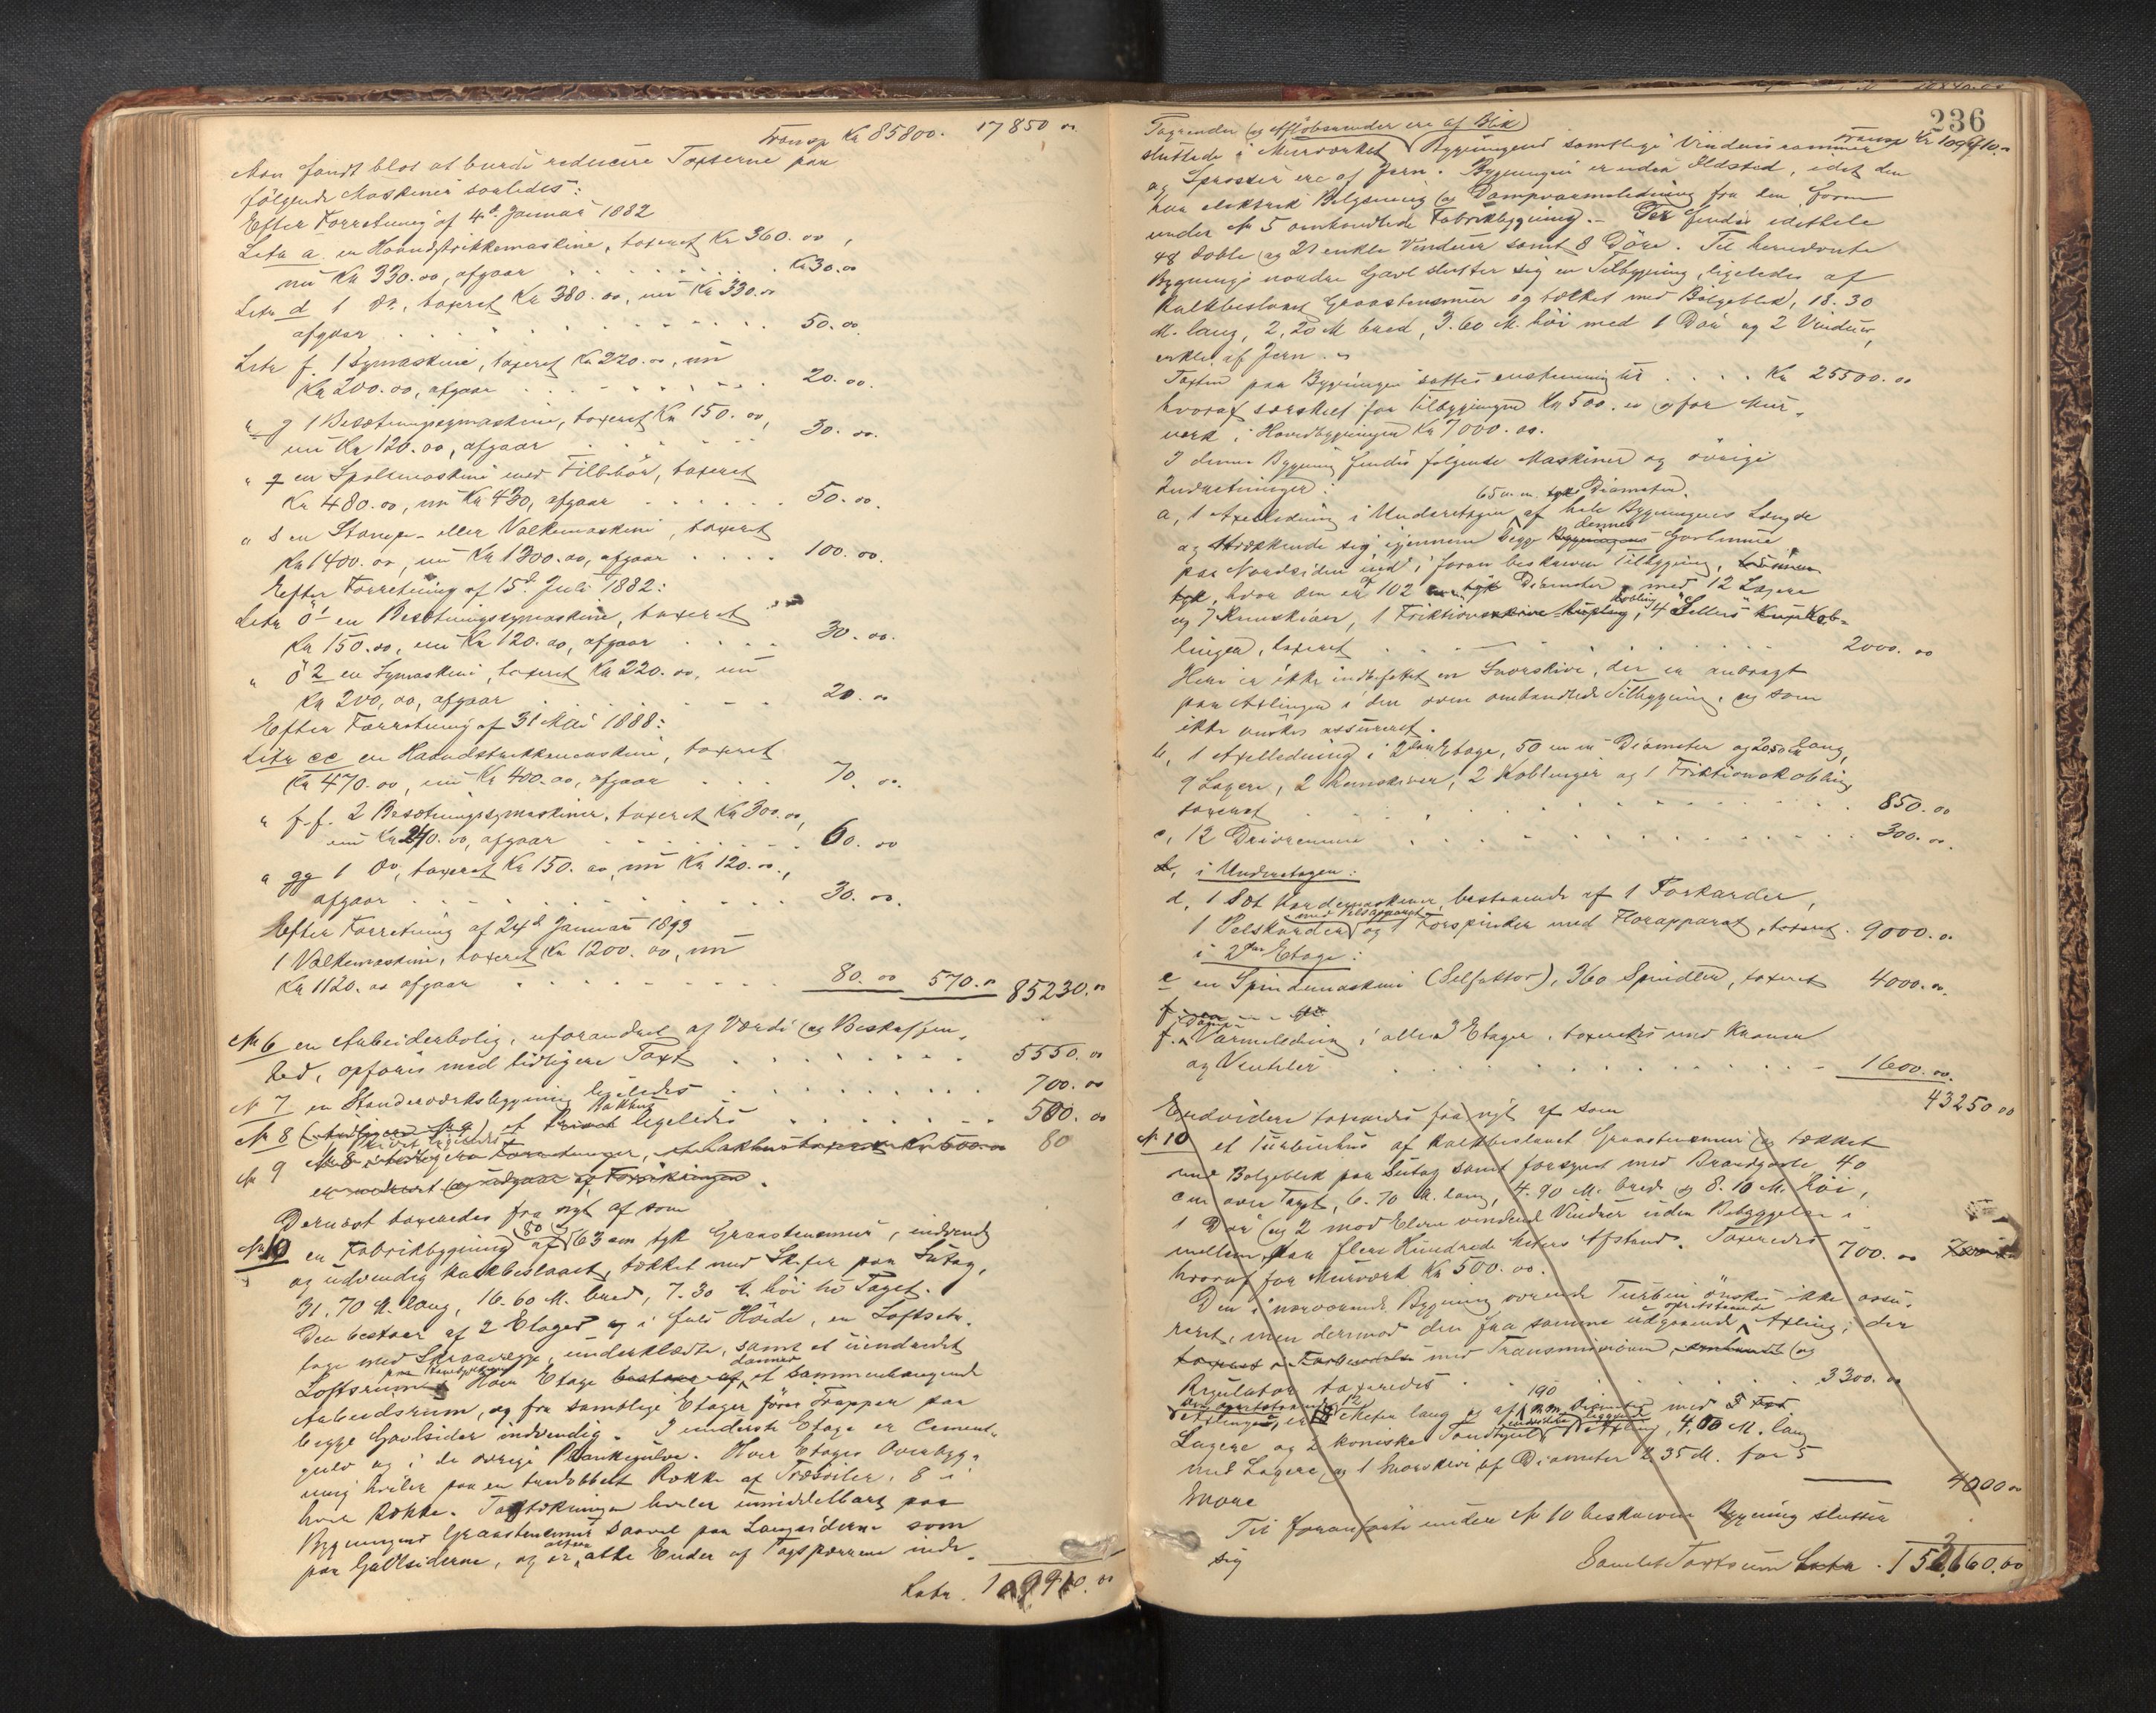 Transp Kr 85800. 17850 00
Man fandt blot at burde reducere Taxterne paa
følgende Maskiner saaledes:
Efter Forretning af 4de Januar 1882
Litr a en Haandstrikkemaskine, taxeret Kr 360.00,
nu Kr 330.00, afgaar . . . . . . . Kr 30.00
Litr d 1 Do, taxeret Kr 380.00, nu Kr 330.00
afgaar . . . . . . . . . . . 50.00.
Litr f. 1 Symaskine, taxeret Kr 220.00, nu
Kr 200.00, afgaar . . . . . . . . 20.00.
" g 1 Besætningssymaskine, taxeret Kr 150.00,
nu Kr 120.00, afgaar . . . . . . 30.00.
" q en Spolemaskine med Tilbehør, taxeret
Kr 480.00, nu Kr 430, afgaar . . . . . . 50.00.
" s en Stampe- eller Valkemaskine, taxeret
Kr 1400.00, nu Kr 1300.00, afgaar . . . . 100.00.
Efter Forretning af 15de Juli 1882:
Litr ö 1 en Besætningssymaskine, taxeret
Kr 150.00, nu Kr 120.00, afgaar . . . . 30.00.
" ö 2 en Symaskine, taxeret Kr 220.00, nu
Kr 200,00, afgaar . . . . . . . 20.00
Efter Forretning af 31 Mai 1888:
Litr cc en Haandstrikkemaskine, taxeret
Kr 470.00, nu Kr 400.00, afgaar . . . 70.00.
" f.f. 2 Besætningssymaskiner, taxeret Kr 300.00,
nu Kr 240.00, afgaar . . . . . . . 60.00
" gg 1 Do, taxeret Kr 150.00, nu Kr 120.00,
afgaar . . . . . . . . . . . . 30.00.
Efter Forretning af 24de Januar 1893
1 Valkemaskine, taxeret Kr 1200.00, nu
Kr 1120.00 afgaar . . . . . . . . 80.00 570.00 85230.00
No 6 en Arbeiderbolig, uforandret af Værdi og Beskaffen-
hed, opføres med tidligere Taxt . . . . . . . 5550.00
No 7 en Standerværksbygning ligeledes . . . . . . . 700.00
No 8 (tidligere No 9) et Bakhus ligeledes . . . . . . 500.00
No 9 Privet ligeledes 80
No 8 i tidligere Forretninger, et Bakhus taxeret Kr 500.00
er nedrevet og udgaar af Forsikringen.
Dernæst taxeredes fra nyt af som
No 10 en Fabrikbygning af 80 63 cm tyk Graastensmur, indvendig
og udvendig kalkbeslaaet, tækket med Skifer paa Sutag,
31.70 M. lang, 16.60 M. bred, 7.30 M. høi til Taget.
Den bestaar af 2 Etager og i fuld Høide, en Loftseta-
tage med Skraavægge, underklædte, samt et uindredet
Loftsrum paa Hanebjælkene. Hver Etage bestaar af danner et sammenhængende
Arbeidsrum, og fra samtlige Etager fører Trapper paa
begge Gavlsider indvendig. I underste Etage er Cement-
gulv og i de øvrige Plankegulve. Hver Etages Overbyg-
ning hviler paa en tredobbelt Række af Træsøiler, 8 i
hver Række. Tagtækningen hviler umiddelbart paa
Bygningens Graastensmur saavel paa Langsiderne som
paa Gavlsiderne, og er alle Ender af Tagsperrene inde-
Latr. 109910.00
236
Tagrender og Afløbsrender ere af Blik Transp Kr 109910.00
sluttede i Murværket. Bygningens samtlige Vinduesrammer
og Sprosser ere af Jern. Bygningen er uden Ildsted, idet den
har elektrisk Belysning og Dampvarmeledning fra den foran
under No 5 omhandlede Fabrikbygning. Der findes idethele
48 doble og 21 enkle Vinduer samt 8 Døre. Til herværende
Bygnings nordre Gavl slutter sig en Tilbygning, ligeledes af
kalkbeslaaet Graastensmur og tækket med Bølgeblik, 18.30
M. lang, 2,20 M. bred, 3.60 M. høi med 1 Dør og 2 Vinduer,
enkle af Jern.
Taxten paa Bygningen sattes enstemmig til . . . . Kr 25500.00
hvoraf særskilt for Tilbygningen Kr 500.00 og for Mur-
værk i Hovedbygningen Kr 7000.00.
I denne Bygning findes følgende Maskiner og øvrige
Indretninger:
65 m.m. tyk Diameter.
a, 1 Axelledning i Underetagen af hele Bygningens Længde
og strækkende sig igjennem begge Bygningens dennes Gavlmure
paa Nordsiden ind i foran beskrevne Tilbygning,
tyk, hvor den er 102 m.m. tyk Diameter, med 12 Lagere
og 7 Remskiver, 1 Friktionskobling, 4 "Sellers" Kob-
linger, taxeret . . . . . . . . . 2000.00
Heri er ikke indbefattet en Snorskive, der er anbragt
paa Axlingen i den oven omhandlede Tilbygning, og som
ikke ønskes assureret.
b, 1 Axelledning i 2den Etage, 50 m m Diameter og 20.50 M lang,
9 Lagere, 2 Remskiver, 2 Koblinger og 1 Friktionskobling
taxeret . . . . . . . . . . . . . . 850.00
c, 12 Drivremme . . . . . . . . . . . . 300.00.
d, i Underetagen:
d, 1 Sæt Kardemaskiner, bestaaende af 1 Forkarder,
1 Pelskarder med Pelsapparat og 1 Forspinder med Florapparat, taxeret . 9000.00
i 2den Etage:
e en Spindemaskine (Selfaktor), 360 Spindler, taxeret 4000.00.
f. Damp Varmeledning i alle 3 Etager, taxeredes med Kraner
og Ventiler . . . . . . . . . . . . . 1600.00.
43250 00
Endvidere taxeredes fra nyt af som
No 10 et Turbinhus af kalkbeslaaet Graastensmur og tækket
med Bølgeblik paa Sutag samt forsynet med Brandgavle 40
cm over Taget, 6.70 M. lang, 4.90 M. bred og 8.10 M. høi,
1 Dør og 2 mod Elven vendende Vinduer uden Bebyggelse i
mellem paa flere Hundrede Meters Afstand. Taxeredes 700.00 700.00
hvoraf for Murværk Kr 500.00.
Den i nærværende Bygning værende Turbin ønskes ikke assu-
reret, men derimod den fra samme udgaaende opretstaaende Axling, der
taxeret med Transmissioner, og
Regulator taxeredes . . . . . . . . 3300.00
Den opretstaaende Axlingen, er 12 Meter lang og af 190 m.m. Diameter med 5
Lagere og 2 koniske Tandhjul, endvidere liggende Axling, 4,00 M. lang
med Lagere og 1 Snorskive af Diameter 2.35 M. for 5
Snore 4000 00
Til foranførte under No 10 beskrevne Bygning slutter
sig
Samlet Taxtsum Latr . 153160.00